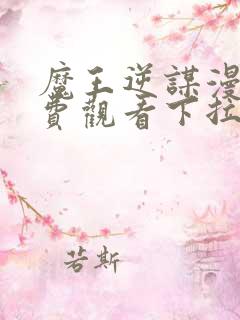 魔王逆謀漫
費觀看下拉
若斯